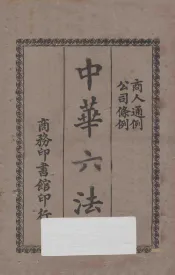 商人通例
公司條例
中華六法
商務印書館印行